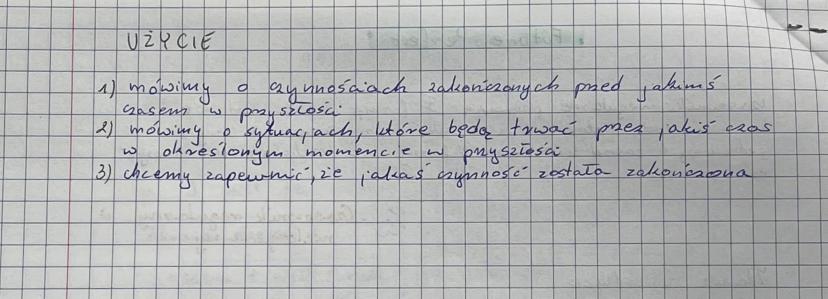 UŻYCIE
1) mówimy o czynnościach zakończonych przed jakimś
czasem w przyszłości
2) mówimy o sytuacjach, które będą trwać przez jakiś czas
w określonym momencie w przyszłości
3) chcemy zapewnić, że jakaś czynność została zakończona